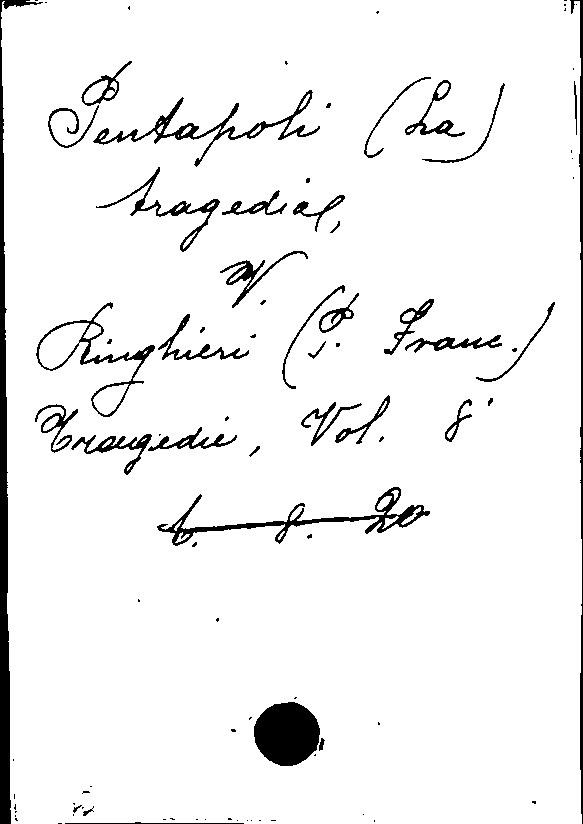 Pentapoli (La)
tragedia,
V.
Ringhieri (P. Franc.)
Tragedie, Vol. 8º
b. 8. 20